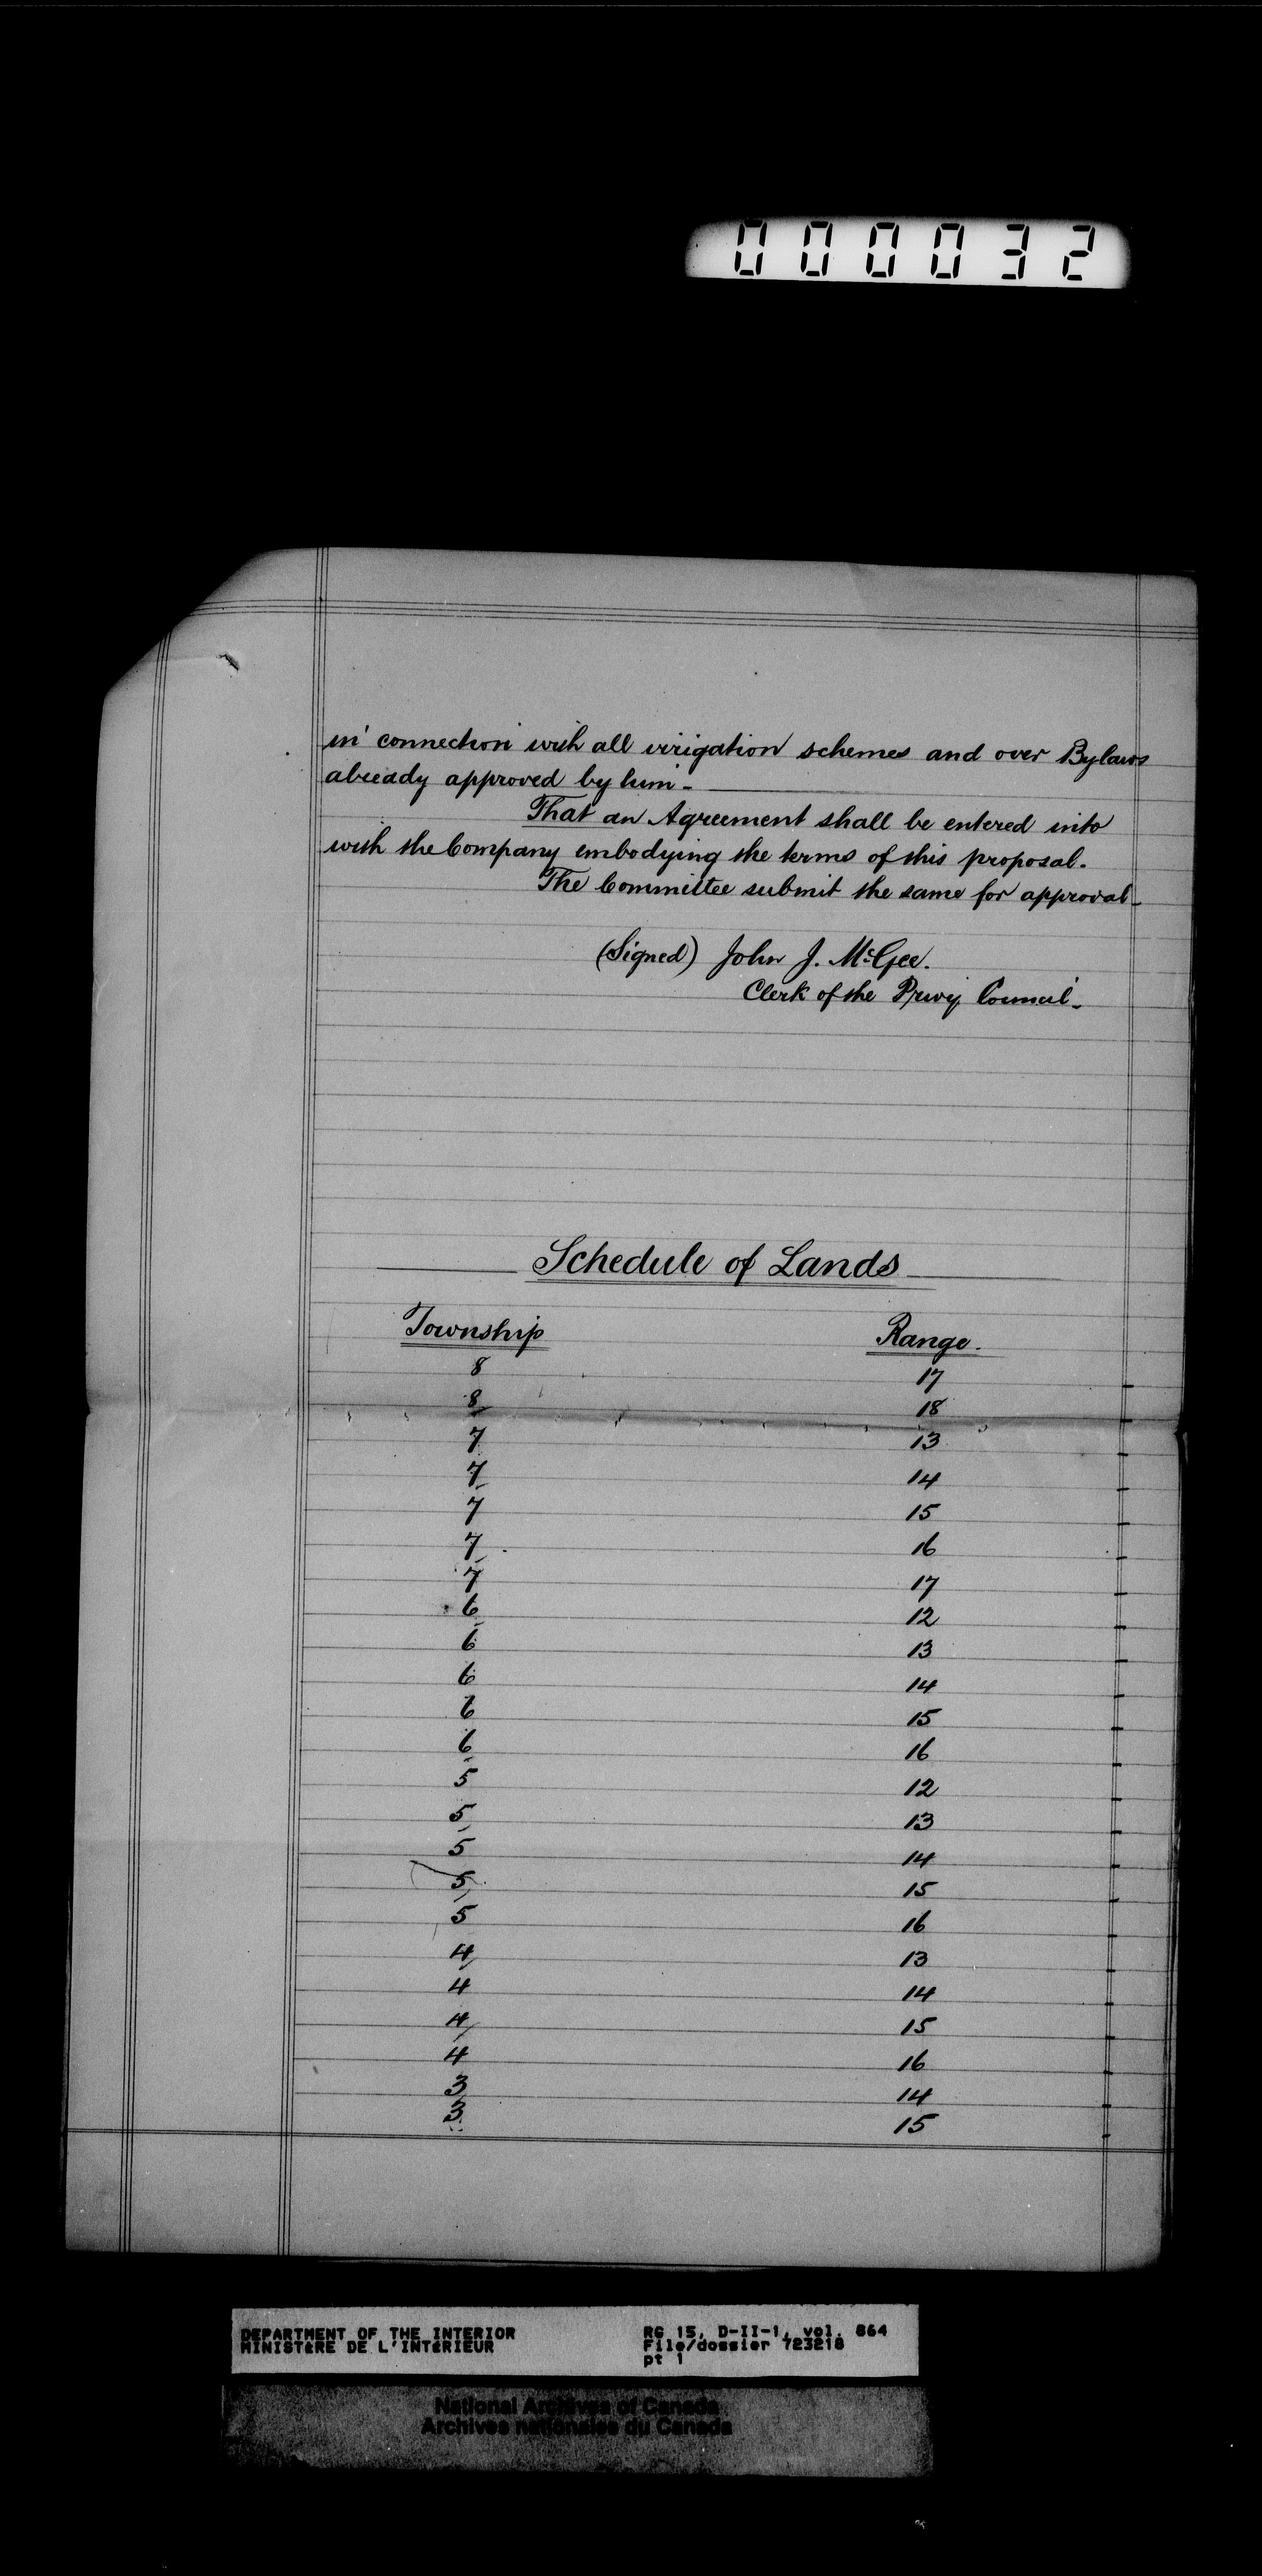 000032
in connection with all irrigation schemes and over Bylaws
already approved by him -
That an Agreement shall be entered into
with the Company embodying the terms of this proposal.
The Committee submit the same for approval -
(Signed) John J. McGee.
Clerk of the Privy Council -
Schedule of Lands
Township Range.
8 17
8 18
7 13
7 14
7 15
7 16
7 17
6 12
6 13
6 14
6 15
6 16
5 12
5 13
5 14
5 15
5 16
4 13
4 14
4 15
4 16
3 14
3 15
DEPARTMENT OF THE INTERIOR RG 15, D-II-1, vol. 864
MINISTÈRE DE L'INTÉRIEUR File/dossier 723218
pt 1
National Archives of Canada
Archives nationales du Canada